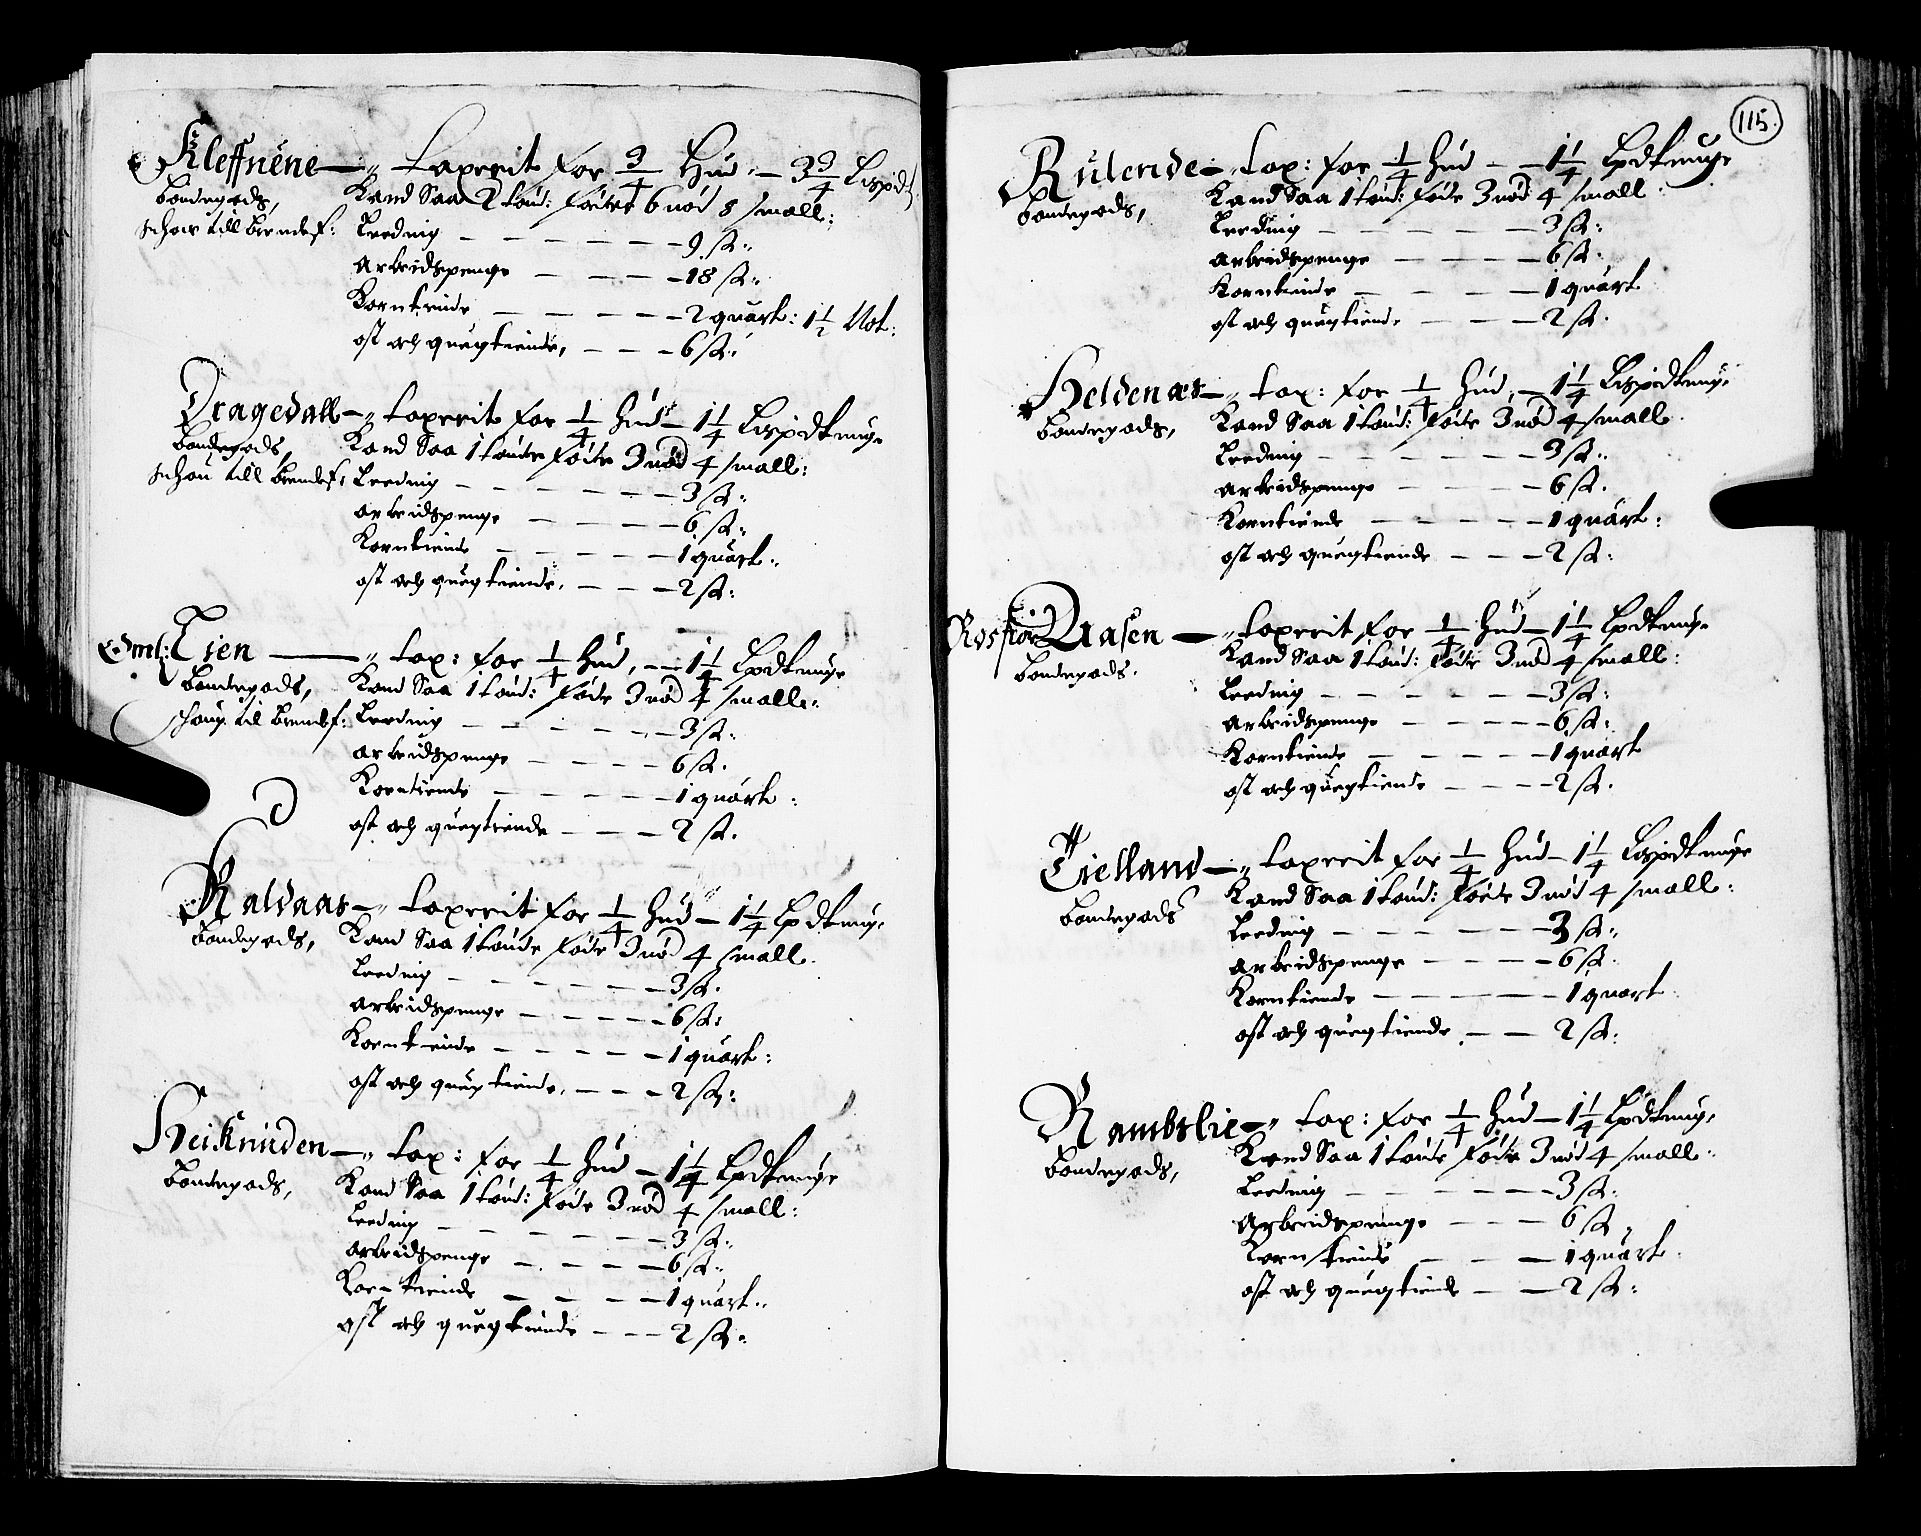 Kleffnene — Taxerit for 3/4 Hud — 3 3/4 Lispd:
Bondegods, Kand Saa 2 tønd: føder 6 nød 8 smalle:
schow till brendef: Leeding — 9 sk:
Arbeidspenge — 18 sk:
Korntiende — 2 quart: 1 1/2 Not:
ost och quegtiende, — 6 sk:
Dragedall — Taxerit for 1/4 Hud — 1 1/4 Lispdtunge
Bondegods, Kand Saa 1 tønde føde 3 nød 4 smalle:
schou till brendef: Leeding — 3 sk:
Arbeidspenge — 6 sk:
Korntiende — 1 quart:
ost och quegtiende. — 2 sk:
Tien — tax: for 1/4 hud, — 1 1/4 Lpdtunge
Bondegods, Kand Saa 1 tønd: føde 3 nød 4 smalle:
schoug til brendef: Leeding — 3 sk:
Arbeidspenge — 6 sk.
Korntiende — 1 quart:
ost och quegtiende — 2 sk.
Raldaas — Taxerit for 1/4 hud — 1 1/4 Lpdtunge
Bondegods, Kand Saa 1 tønde føde 3 nød 4 smalle.
Leeding — 3 sk.
Arbeidspenge — 6 sk:
Korntiende — 1 quart:
ost och quegtiende. — 2 sk:
Heiknuden — tax: for 1/4 hud — 1 1/4 Lpdtunge
Bondegods, Kand Saa 1 tønd: føde 3 nød 4 smalle:
Leeding — 3 sk:
Arbeidspenge — 6 sk:
Korntiende — 1 quart:
ost och quegtiende — 2 sk:
115.
Rulende — tax: for 1/4 hud — 1 1/4 Lpdtunge
Bondegods, Kand Saa 1 tønd: føde 3 nød 4 smalle:
Leeding — 3 sk:
Arbeidspenge — 6 sk:
Korntiende — 1 quart
ost och quegtiende — 2 sk.
Heldenæs — tax: for 1/4 hud, — 1 1/4 Lispdtunge
Bondegods, Kand Saa 1 tønd: føde 3 nød 4 smalle.
Leeding — 3 sk:
Arbeidspenge — 6 sk.
Korntiende — 1 quart:
ost och quegtiende — 2 sk:
Aasen — Taxerit for 1/4 hud — 1 1/4 Lpdtunge
Bondegods. Kand Saa 1 tønd: føde 3 nød 4 smalle:
Leeding — 3 sk:
Arbeidspenge — 6 sk:
Korntiende — 1 quart
ost och quegtiende — 2 sk.
Tielland — Taxerit for 1/4 hud — 1 1/4 Lispdtunge
Bondegods Kand Saa 1 tønd: føde 3 nød 4 smalle:
Leeding — 3 sk:
Arbeidspenge — 6 sk.
Korntiende — 1 quart
ost och quegtiende — 2 sk:
Rambslie — tax: for 1/4 hud — 1 1/4 Lpdtunge
Bondegods, Kand Saa 1 tønde føde 3 nød 4 smalle:
Leeding — 3 sk:
Arbeidspenge — 6 sk
Korntiende — 1 quart.
ost och quegtiende — 2 sk: